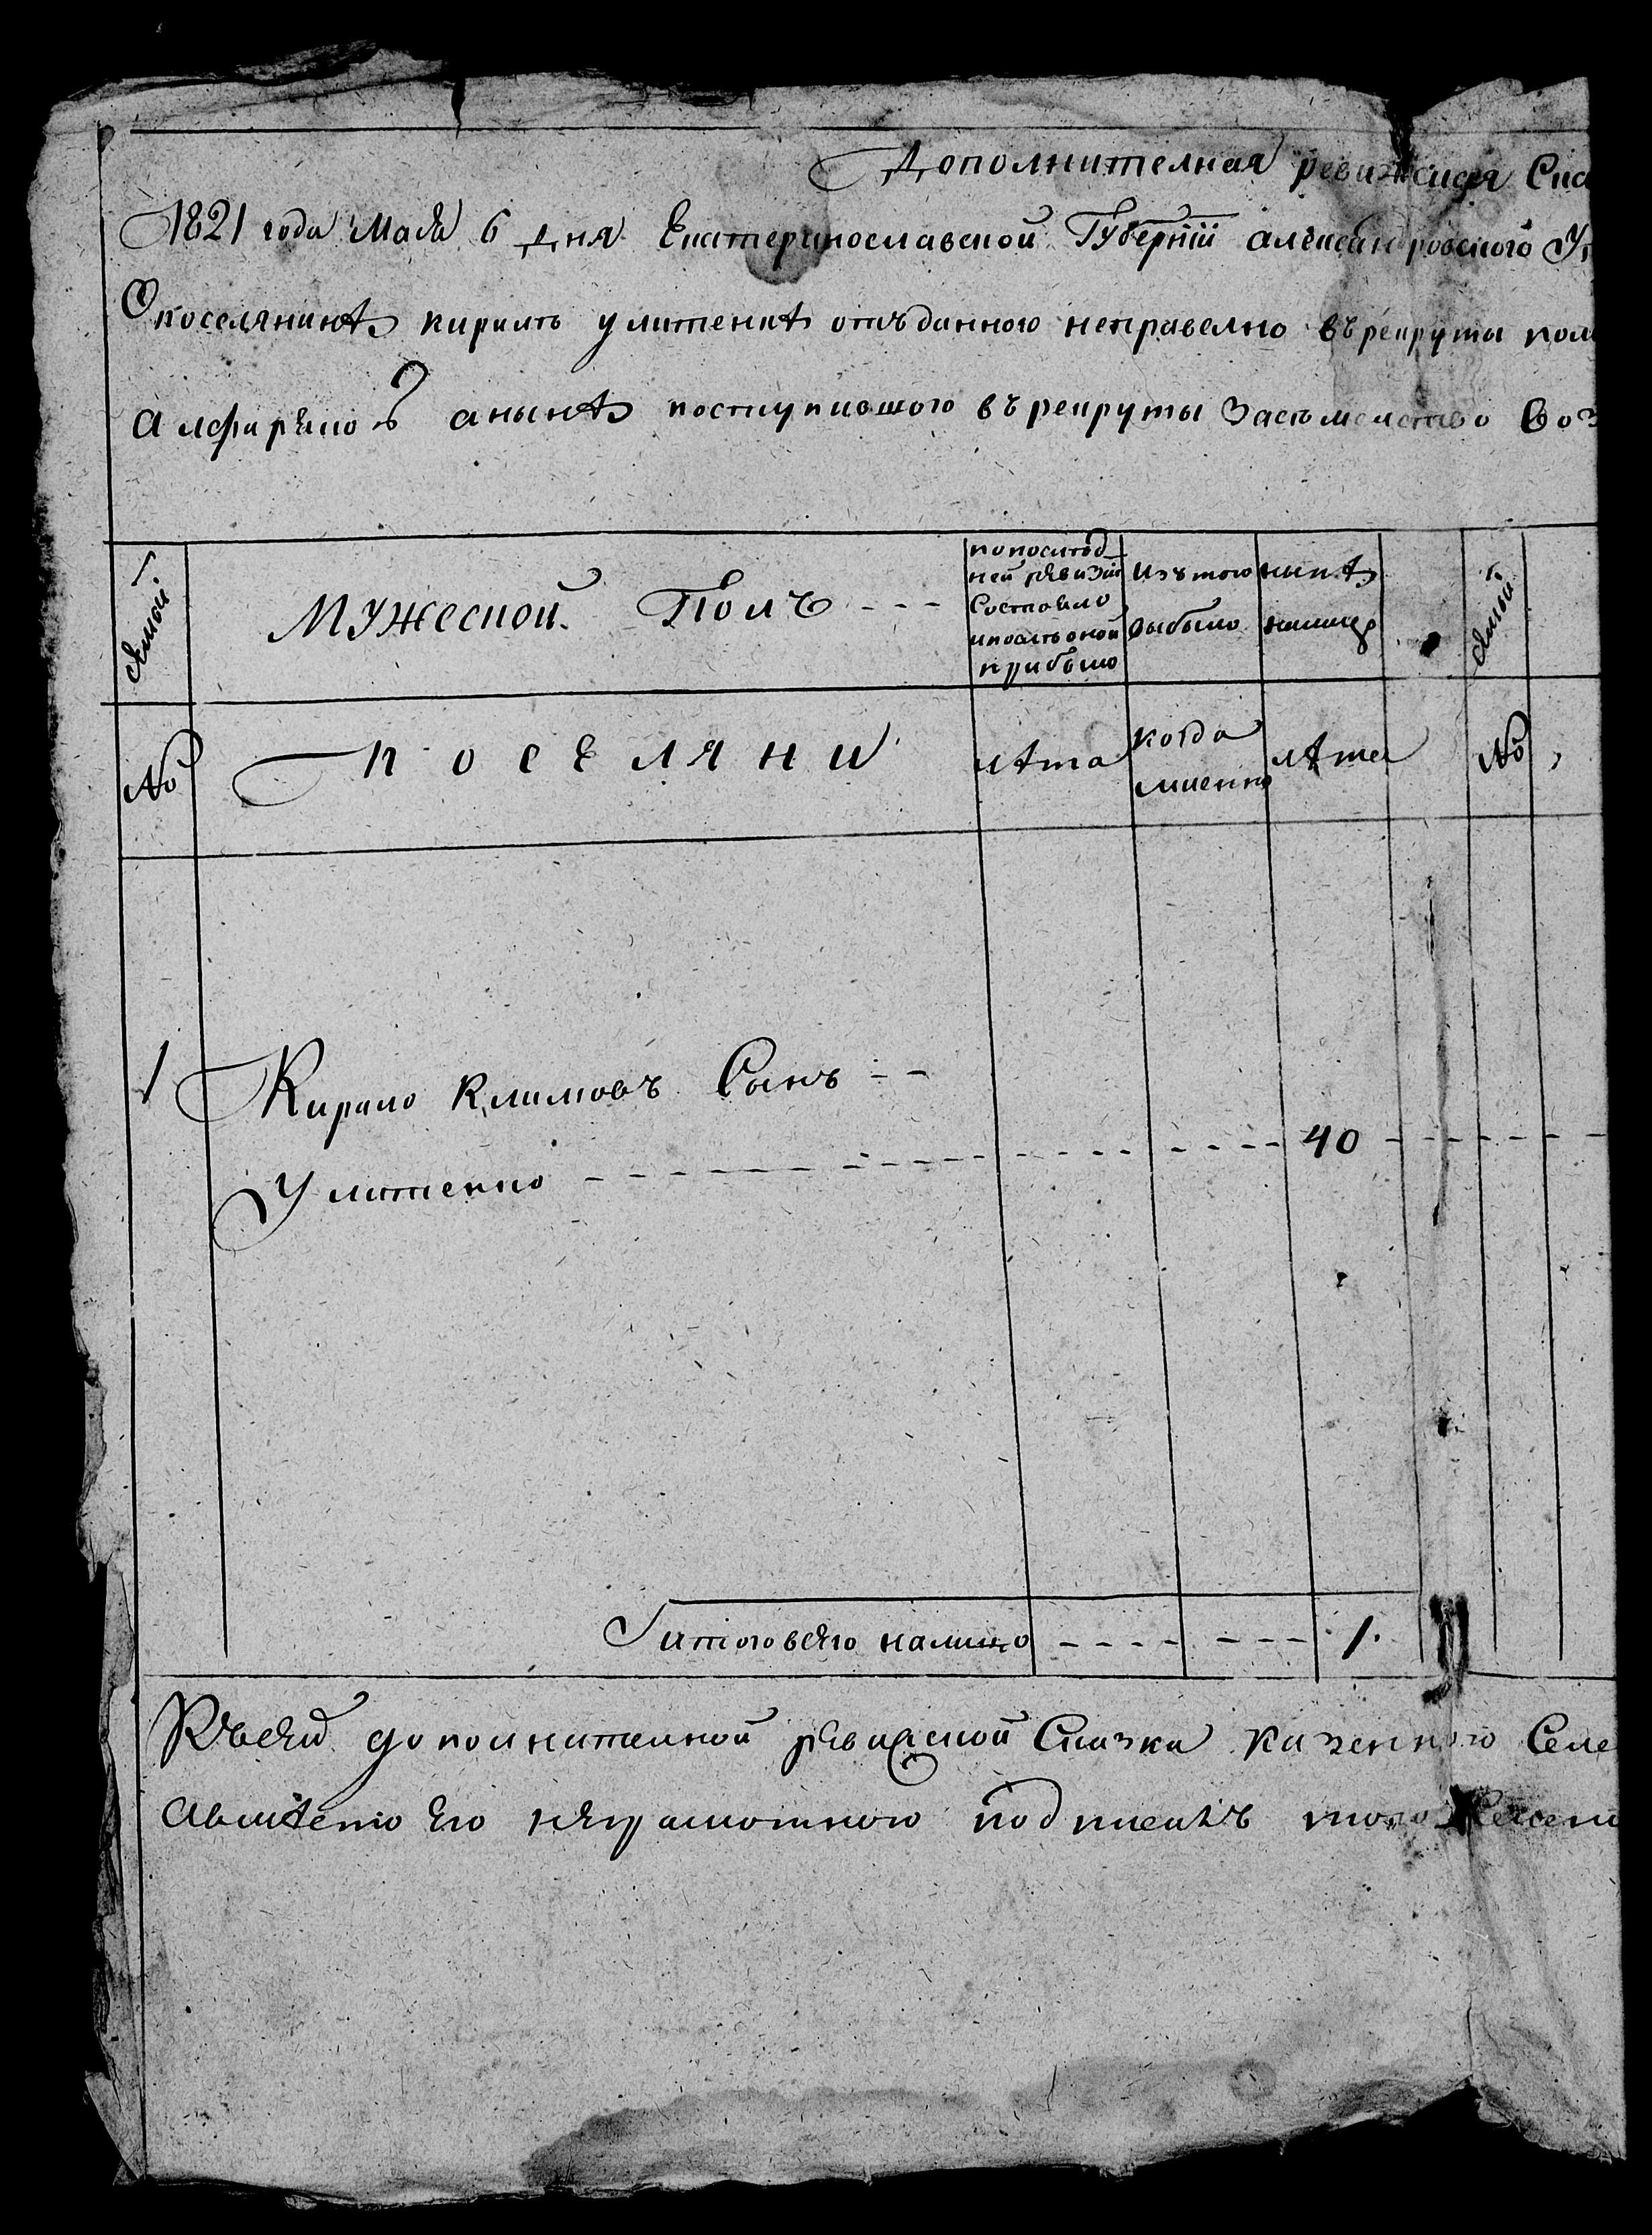 Дополнителная ревижская Ска
1821 года Мая 6 дня Екатеринославской Губернїи александровского У
О поселянинѣ кирилѣ улитенкѣ отъданного неправелно въ рекруты
алфирено анынѣ поступившого въ рекруты Засемемство Воз
Семьи
Мужеской Полъ - - -
попослѣд
ней ревизїи
Состояло
ипослѣ оной
прибыло
Изътого
выбыло
нынѣ
налицо
Семьи
№
поселяни
лѣта
когда
имянно
лѣта
№
1 Кирило Климовъ Сынъ - -
Улитенко - - - 40 - - -
итого всего налицо - - - - - - - 1.
Къ сей дополнителной ревиской Сказки казенного Селе
Авлѣенко его неграмотного подписалъ того